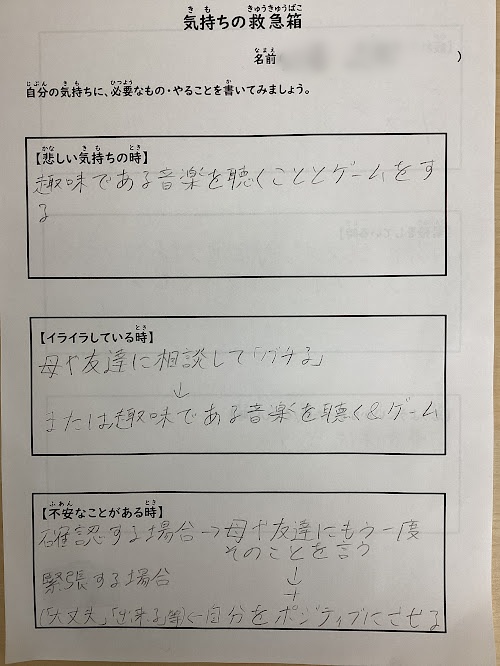 気持ちの救急箱
名前 )
自分の気持ちに、必要なもの・やることを書いてみましょう。
【悲しい気持ちの時】
趣味である音楽を聴くこととゲームをす
る
【イライラしている時】
母や友達に相談して「グチる」
↓
または趣味である音楽を聴く&ゲーム
【不安なことがある時】
確認する場合→母や友達にもう一度
そのことを言う
↓
緊張する場合 +
(「大丈夫」「出来る」等)←自分をポジティブにさせる